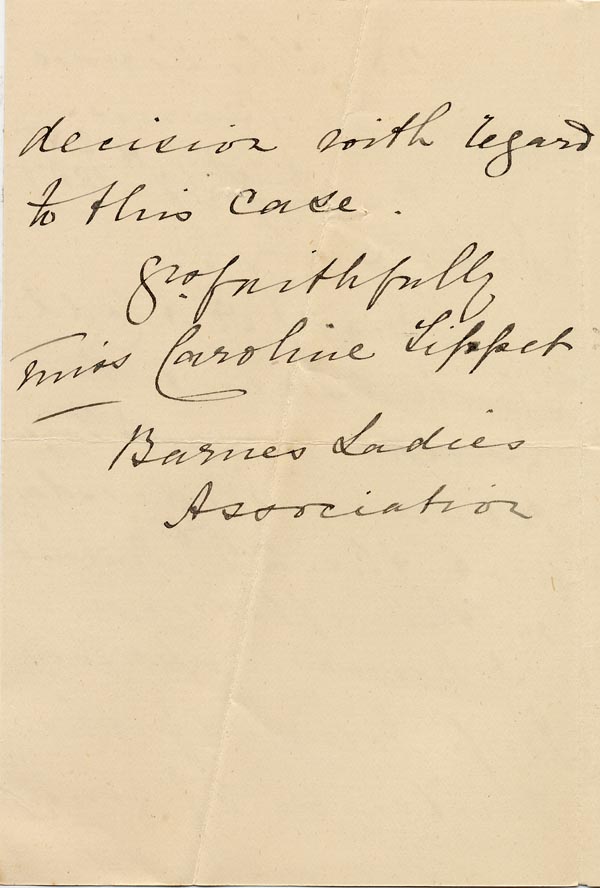 decision with regard
to this case.
Yrs. faithfully
Miss Caroline Tippet
Barnes Ladies
Association